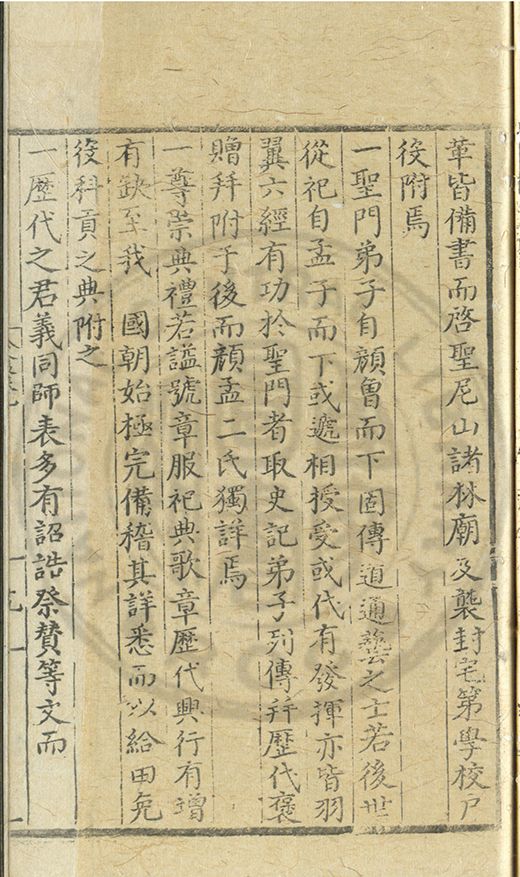 革皆備書而啓聖尼山諸林廟及襲封宅第學校戸
役附焉
一聖門弟子自顔曾而下固傳道通藝之士若後世
從祀自孟子而下或遞相授受或代有發揮亦皆羽
翼六經有功於聖門者取史記弟子列傳幷歷代褒
贈幷附于後而顔孟二氏獨詳焉
一尊崇典禮若謚號章服祀典歌章歷代興行有增
有缺至我 國朝始極完備稽其詳悉而以給田免
役科貢之典附之
一歷代之君義同師表多有詔誥祭贊等文而